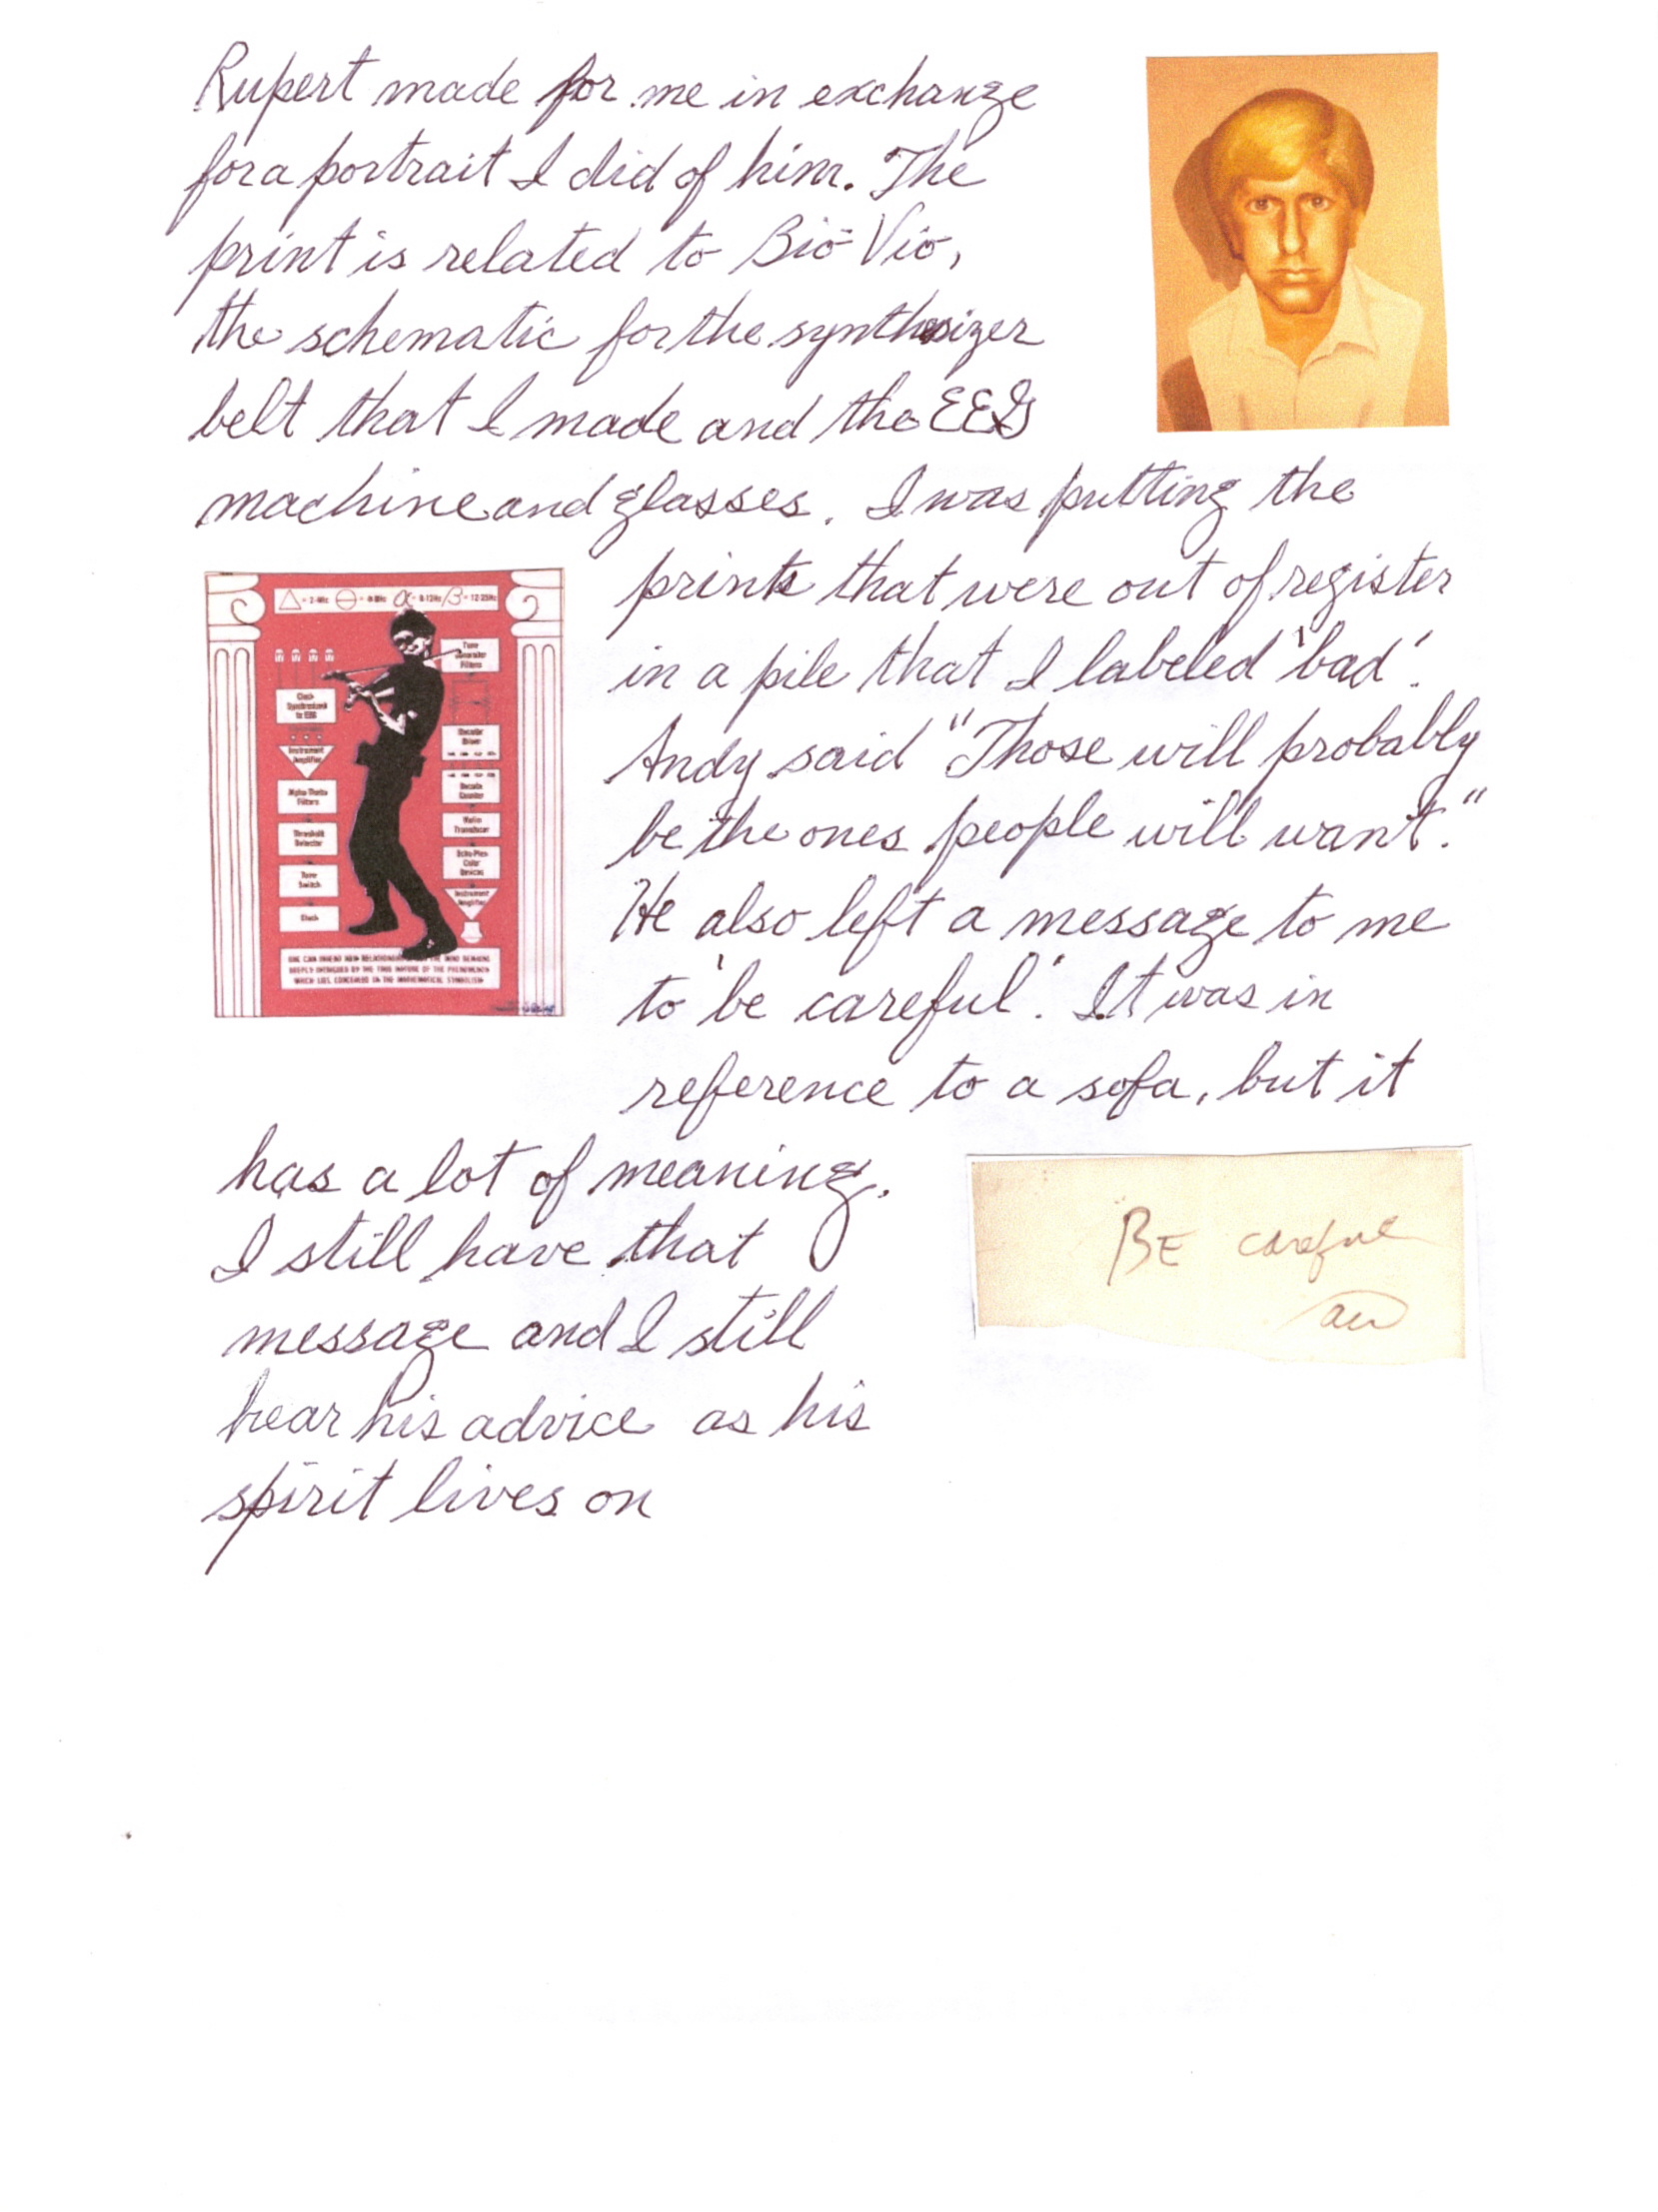 Rupert made for me in exchange
for a portrait I did of him. The
print is related to Bio-Vio,
the schematic for the synthesizer
belt that I made and the EEG
machine and glasses. I was putting the
prints that were out of register
in a pile that I labeled 'bad'.
Andy said "Those will probably
be the ones people will want."
He also left a message to me
to 'be careful'. It was in
reference to a sofa, but it
has a lot of meaning.
I still have that
message and I still
hear his advice as his
spirit lives on
Clock
Synchronized
to EEG
Instrument
Amplifier
Alpha-Theta
Filters
Threshold
Detector
Tone
Switch
Clock
Tone
Generator
Filters
Decade
Driver
Decade
Counter
Radio
Transducer
Color
Devices
Instrument
Amplifier
DEEPLY INTRIGUED BY THE TRUE NATURE OF THE PHENOMENON
WHICH LIES CONCEALED IN THE MATHEMATICAL SYMBOLISM
BE careful
aw